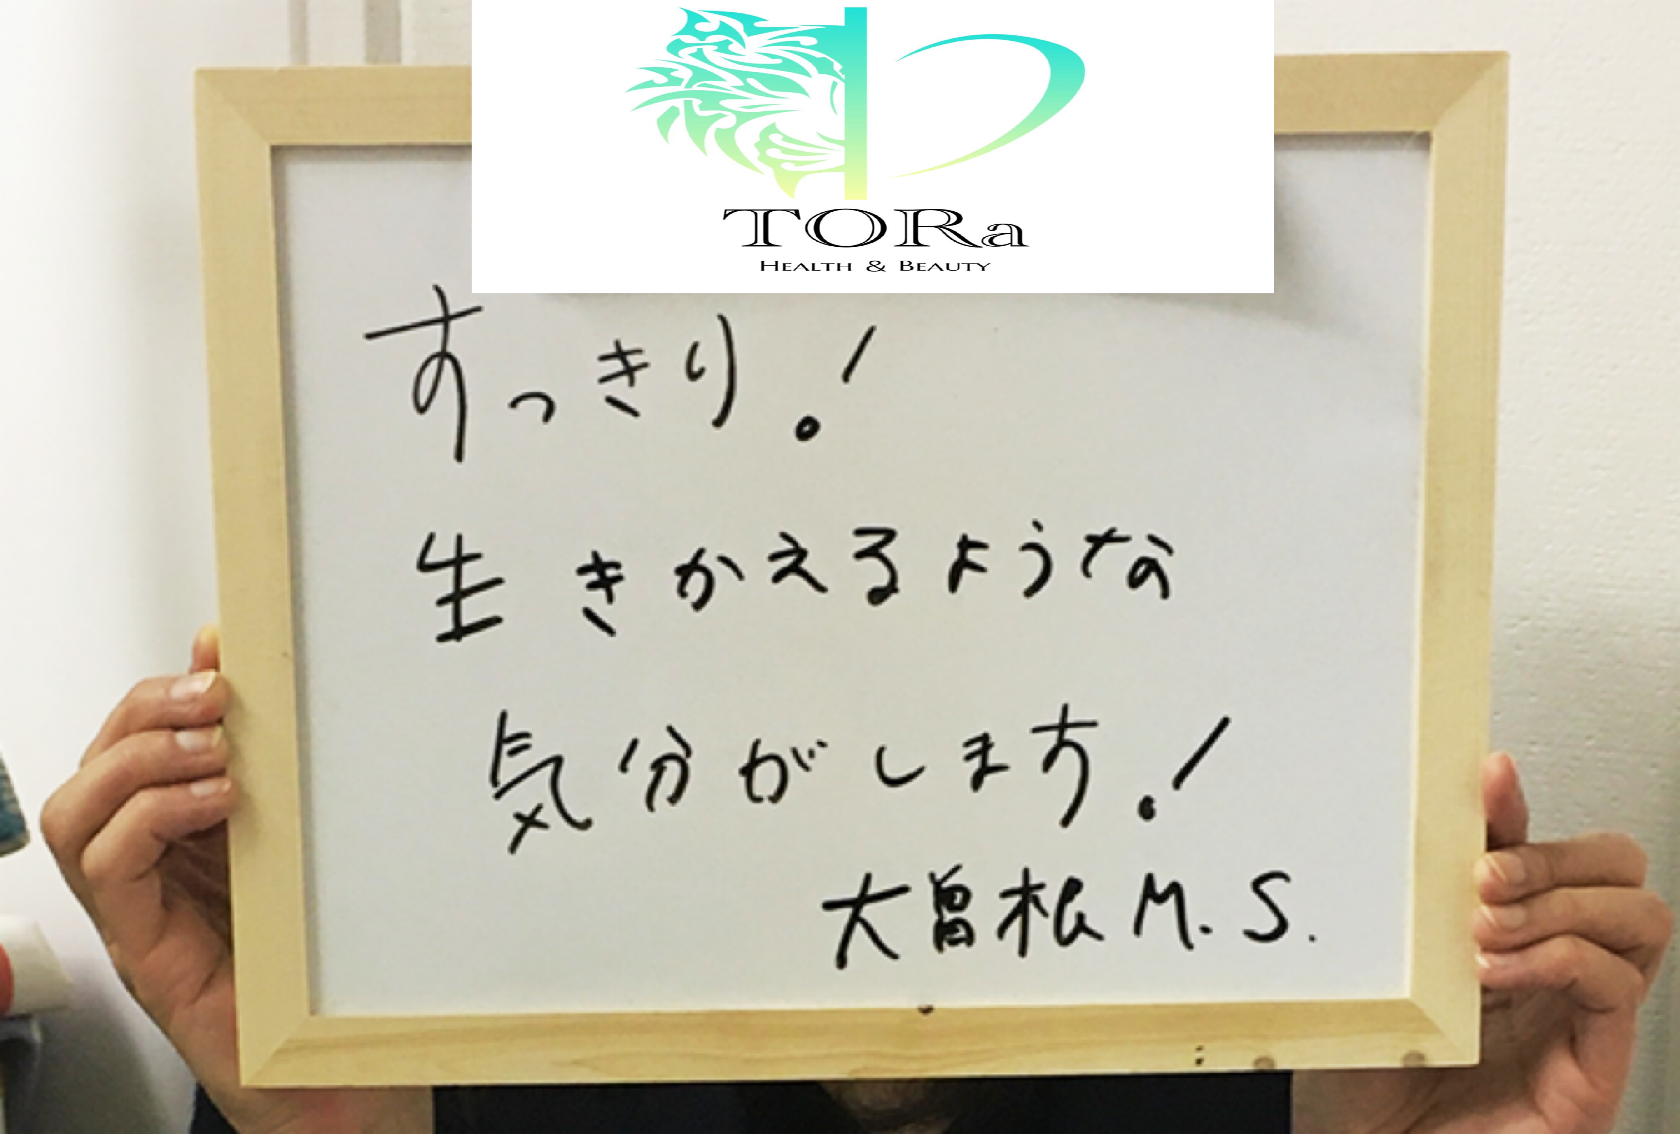 TORa
HEALTH & BEAUTY
すっきり!
生きかえるような
気分がします!
大曽根 M.S.